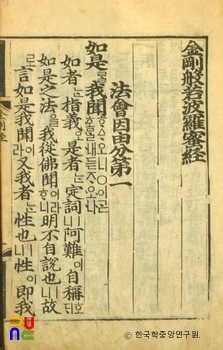 金剛般若波羅蜜經
法會因由分第一
如是我聞
如者ᄂᆞᆫ指義오是者ᄂᆞᆫ定詞ㅣ라阿難이自稱호ᄃᆡ
如是之法을我從佛聞이라明不自說也ㅣ니故
로言如是我聞이라又我者ᄂᆞᆫ性也ㅣ니性이即我
ⓒ 한국학중앙연구원